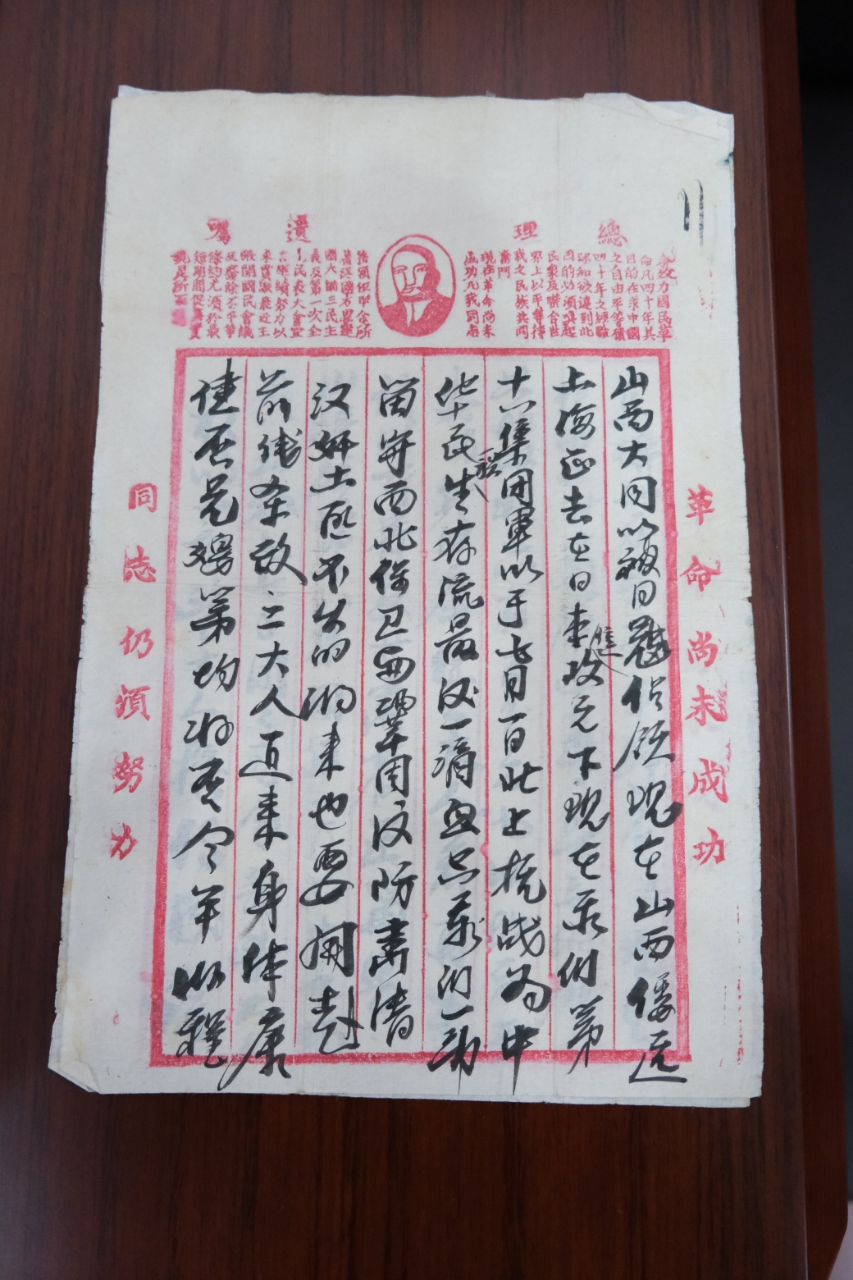 總理遺囑
余致力國民革
命凡四十年其
目的在求中國
之自由平等積
四十年之經驗
深知欲達到此
目的必須喚起
民眾及聯合世
界上以平等待
我之民族共同
奮鬥
現在革命尚未
成功凡我同志
務須依照余所
著建國方略建
國大綱三民主
義及第一次全
國代表大會宣
言繼續努力以
求貫徹最近主
張開國民會議
及廢除不平等
條約尤須於最
短期間促其實
現是所至囑
革命尚未成功
山西大同以被日寇佔領現在山西倭匪
上海正去在日来進攻之下現在我们第
十八集团軍以于七月一日北上抗战为中
华民族生存流最后一滴血只我们一部
留守西北保卫鞏固後防肅清
汉奸土匪不久的将来也要開赴
前线杀敌二大人近来身体康
健否兄嫂弟均好否今年收程
同志仍須努力